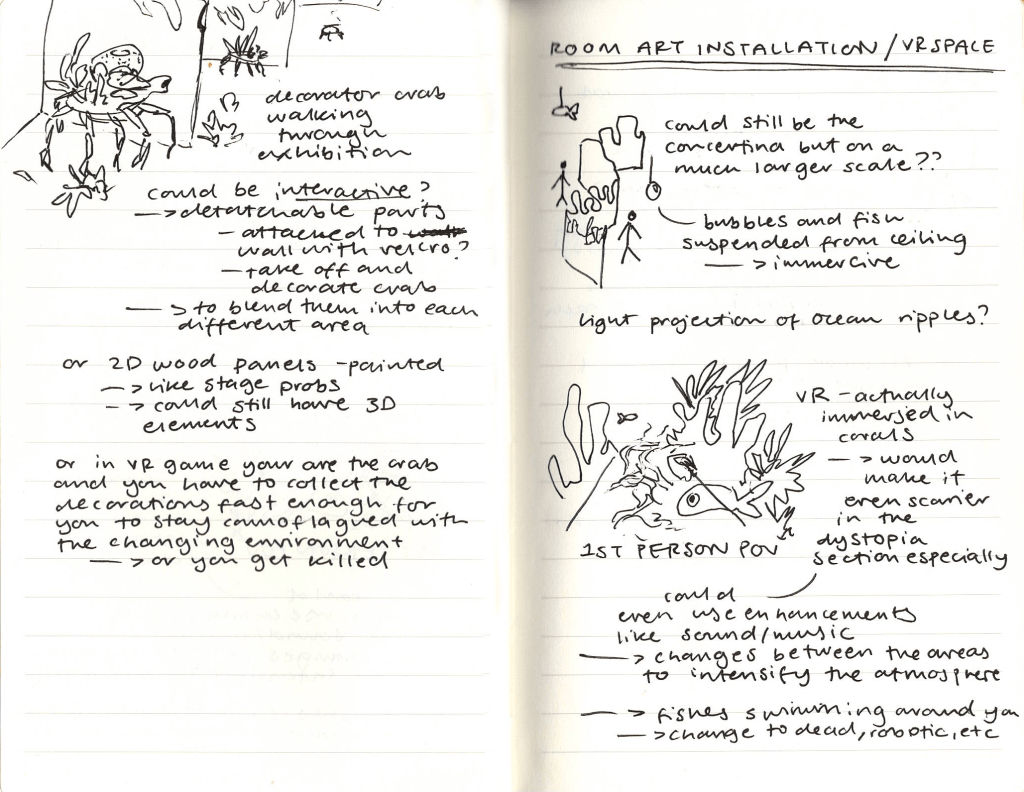 decorator crab
walking
through
exhibition
could be interactive?
—> detatchable parts
- attached to
wall with velcro?
- take off and
decorate crab
—> to blend them into each
different area
or 2D wood panels - painted
—> like stage probs
-> could still have 3D
elements
or in VR game your are the crab
and you have to collect the
decorations fast enough for
you to stay camoflagued with
the changing environment
—> or you get killed
ROOM ART INSTALLATION / VR SPACE
could still be the
concertina but on a
much larger scale??
bubbles and fish
suspended from ceiling
—> immercive
light projection of ocean ripples?
VR - actually
immersed in
corals
-> would
make it
even scarier
in the
dystopia
section especially
1ST PERSON POV
could
even use enhancements
like sound/music
—> changes between the areas
to intensify the atmosphere
—> fishes swimming around you
—> change to dead, robotic, etc